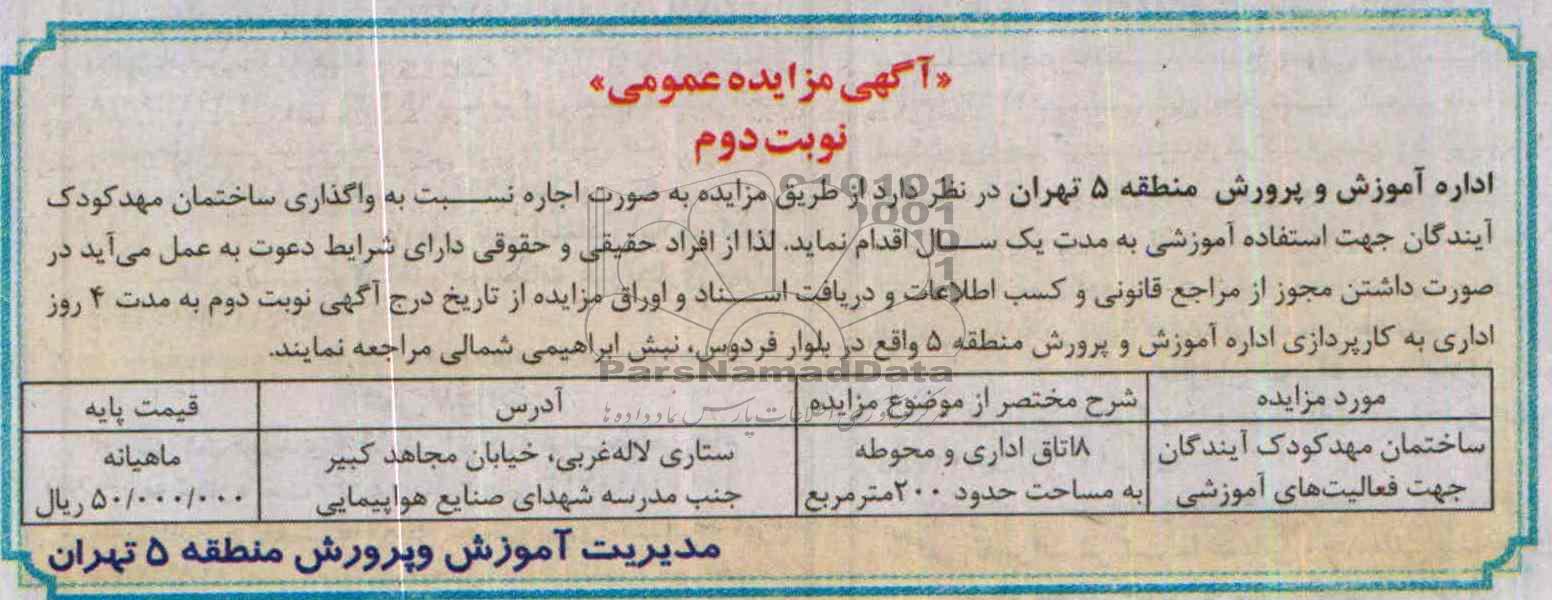 «آگهی مزایده عمومی»
نوبت دوم
اداره آموزش و پرورش منطقه ۵ تهران در نظر دارد از طریق مزایده به صورت اجاره نسبت به واگذاری ساختمان مهدکودک
آیندگان جهت استفاده آموزشی به مدت یک سال اقدام نماید. لذا از افراد حقیقی و حقوقی دارای شرایط دعوت به عمل می‌آید در
صورت داشتن مجوز از مراجع قانونی و کسب اطلاعات و دریافت اسناد و اوراق مزایده از تاریخ درج آگهی نوبت دوم به مدت ۴ روز
اداری به کارپردازی اداره آموزش و پرورش منطقه ۵ واقع در بلوار فردوس، نبش ابراهیمی شمالی مراجعه نمایند.
ParsNamadData
مورد مزایده شرح مختصر از موضوع مزایده آدرس قیمت پایه
ساختمان مهدکودک آیندگان ۸اتاق اداری و محوطه ستاری لاله‌غربی، خیابان مجاهد کبیر ماهیانه
جهت فعالیت‌های آموزشی به مساحت حدود ۲۰۰مترمربع جنب مدرسه شهدای صنایع هواپیمایی ۵۰/۰۰۰/۰۰۰ ریال
مدیریت آموزش وپرورش منطقه ۵ تهران